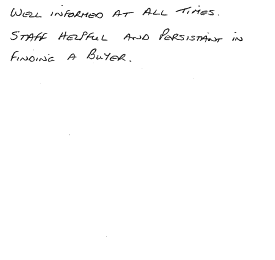 WELL INFORMED AT ALL TIMES.
STAFF HELPFUL AND PERSISTANT IN
FINDING A BUYER.